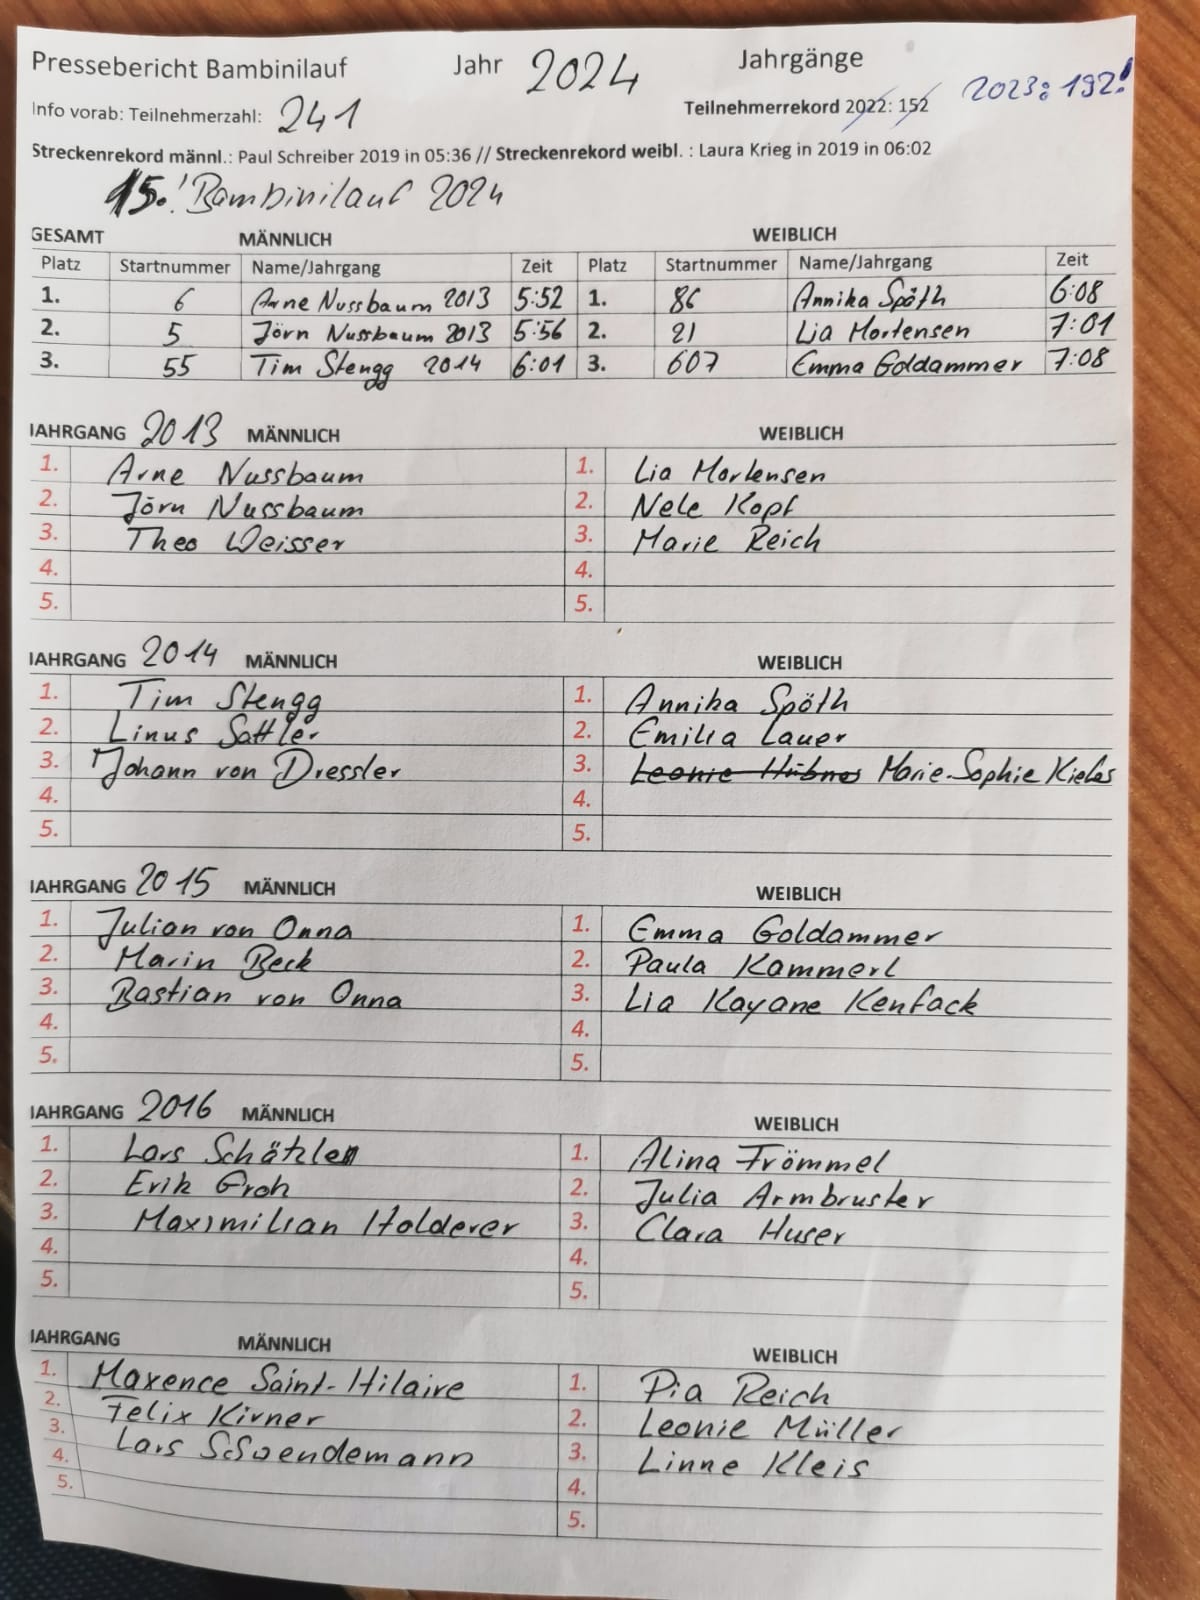 Pressebericht Bambinilauf Jahr 2024 Jahrgänge
Info vorab: Teilnehmerzahl: 241 Teilnehmerrekord 2022: 152 2023: 192!
Streckenrekord männl.: Paul Schreiber 2019 in 05:36 // Streckenrekord weibl. : Laura Krieg in 2019 in 06:02
15.! Bambinilauf 2024
GESAMT MÄNNLICH WEIBLICH
Platz Startnummer Name/Jahrgang Zeit Platz Startnummer Name/Jahrgang Zeit
1. 6 Arne Nussbaum 2013 5:52 1. 86 Annika Späth 6:08
2. 5 Jörn Nussbaum 2013 5:56 2. 21 Lia Mortensen 7:01
3. 55 Tim Stengg 2014 6:01 3. 607 Emma Goldammer 7:08
JAHRGANG 2013 MÄNNLICH WEIBLICH
1. Arne Nussbaum 1. Lia Mortensen
2. Jörn Nussbaum 2. Nele Kopf
3. Theo Weisser 3. Marie Reich
4. 4.
5. 5.
JAHRGANG 2014 MÄNNLICH WEIBLICH
1. Tim Stengg 1. Annika Späth
2. Linus Sattler 2. Emilia Lauer
3. Johann von Dressler 3. Leonie Hübner Marie-Sophie
4. 4.
5. 5.
JAHRGANG 2015 MÄNNLICH WEIBLICH
1. Julian von Onna 1. Emma Goldammer
2. Marin Beck 2. Paula Kammerl
3. Bastian von Onna 3. Lia Kayane Kenfack
4. 4.
5. 5.
JAHRGANG 2016 MÄNNLICH WEIBLICH
1. Lars Schätzle 1. Alina Frömmel
2. Erik Groh 2. Julia Armbruster
3. Maximilian Holderer 3. Clara Huser
4. 4.
5. 5.
JAHRGANG MÄNNLICH WEIBLICH
1. Maxence Saint-Hilaire 1. Pia Reich
2. Felix Kirner 2. Leonie Müller
3. Lars Schwendemann 3. Linne Kleis
4. 4.
5. 5.